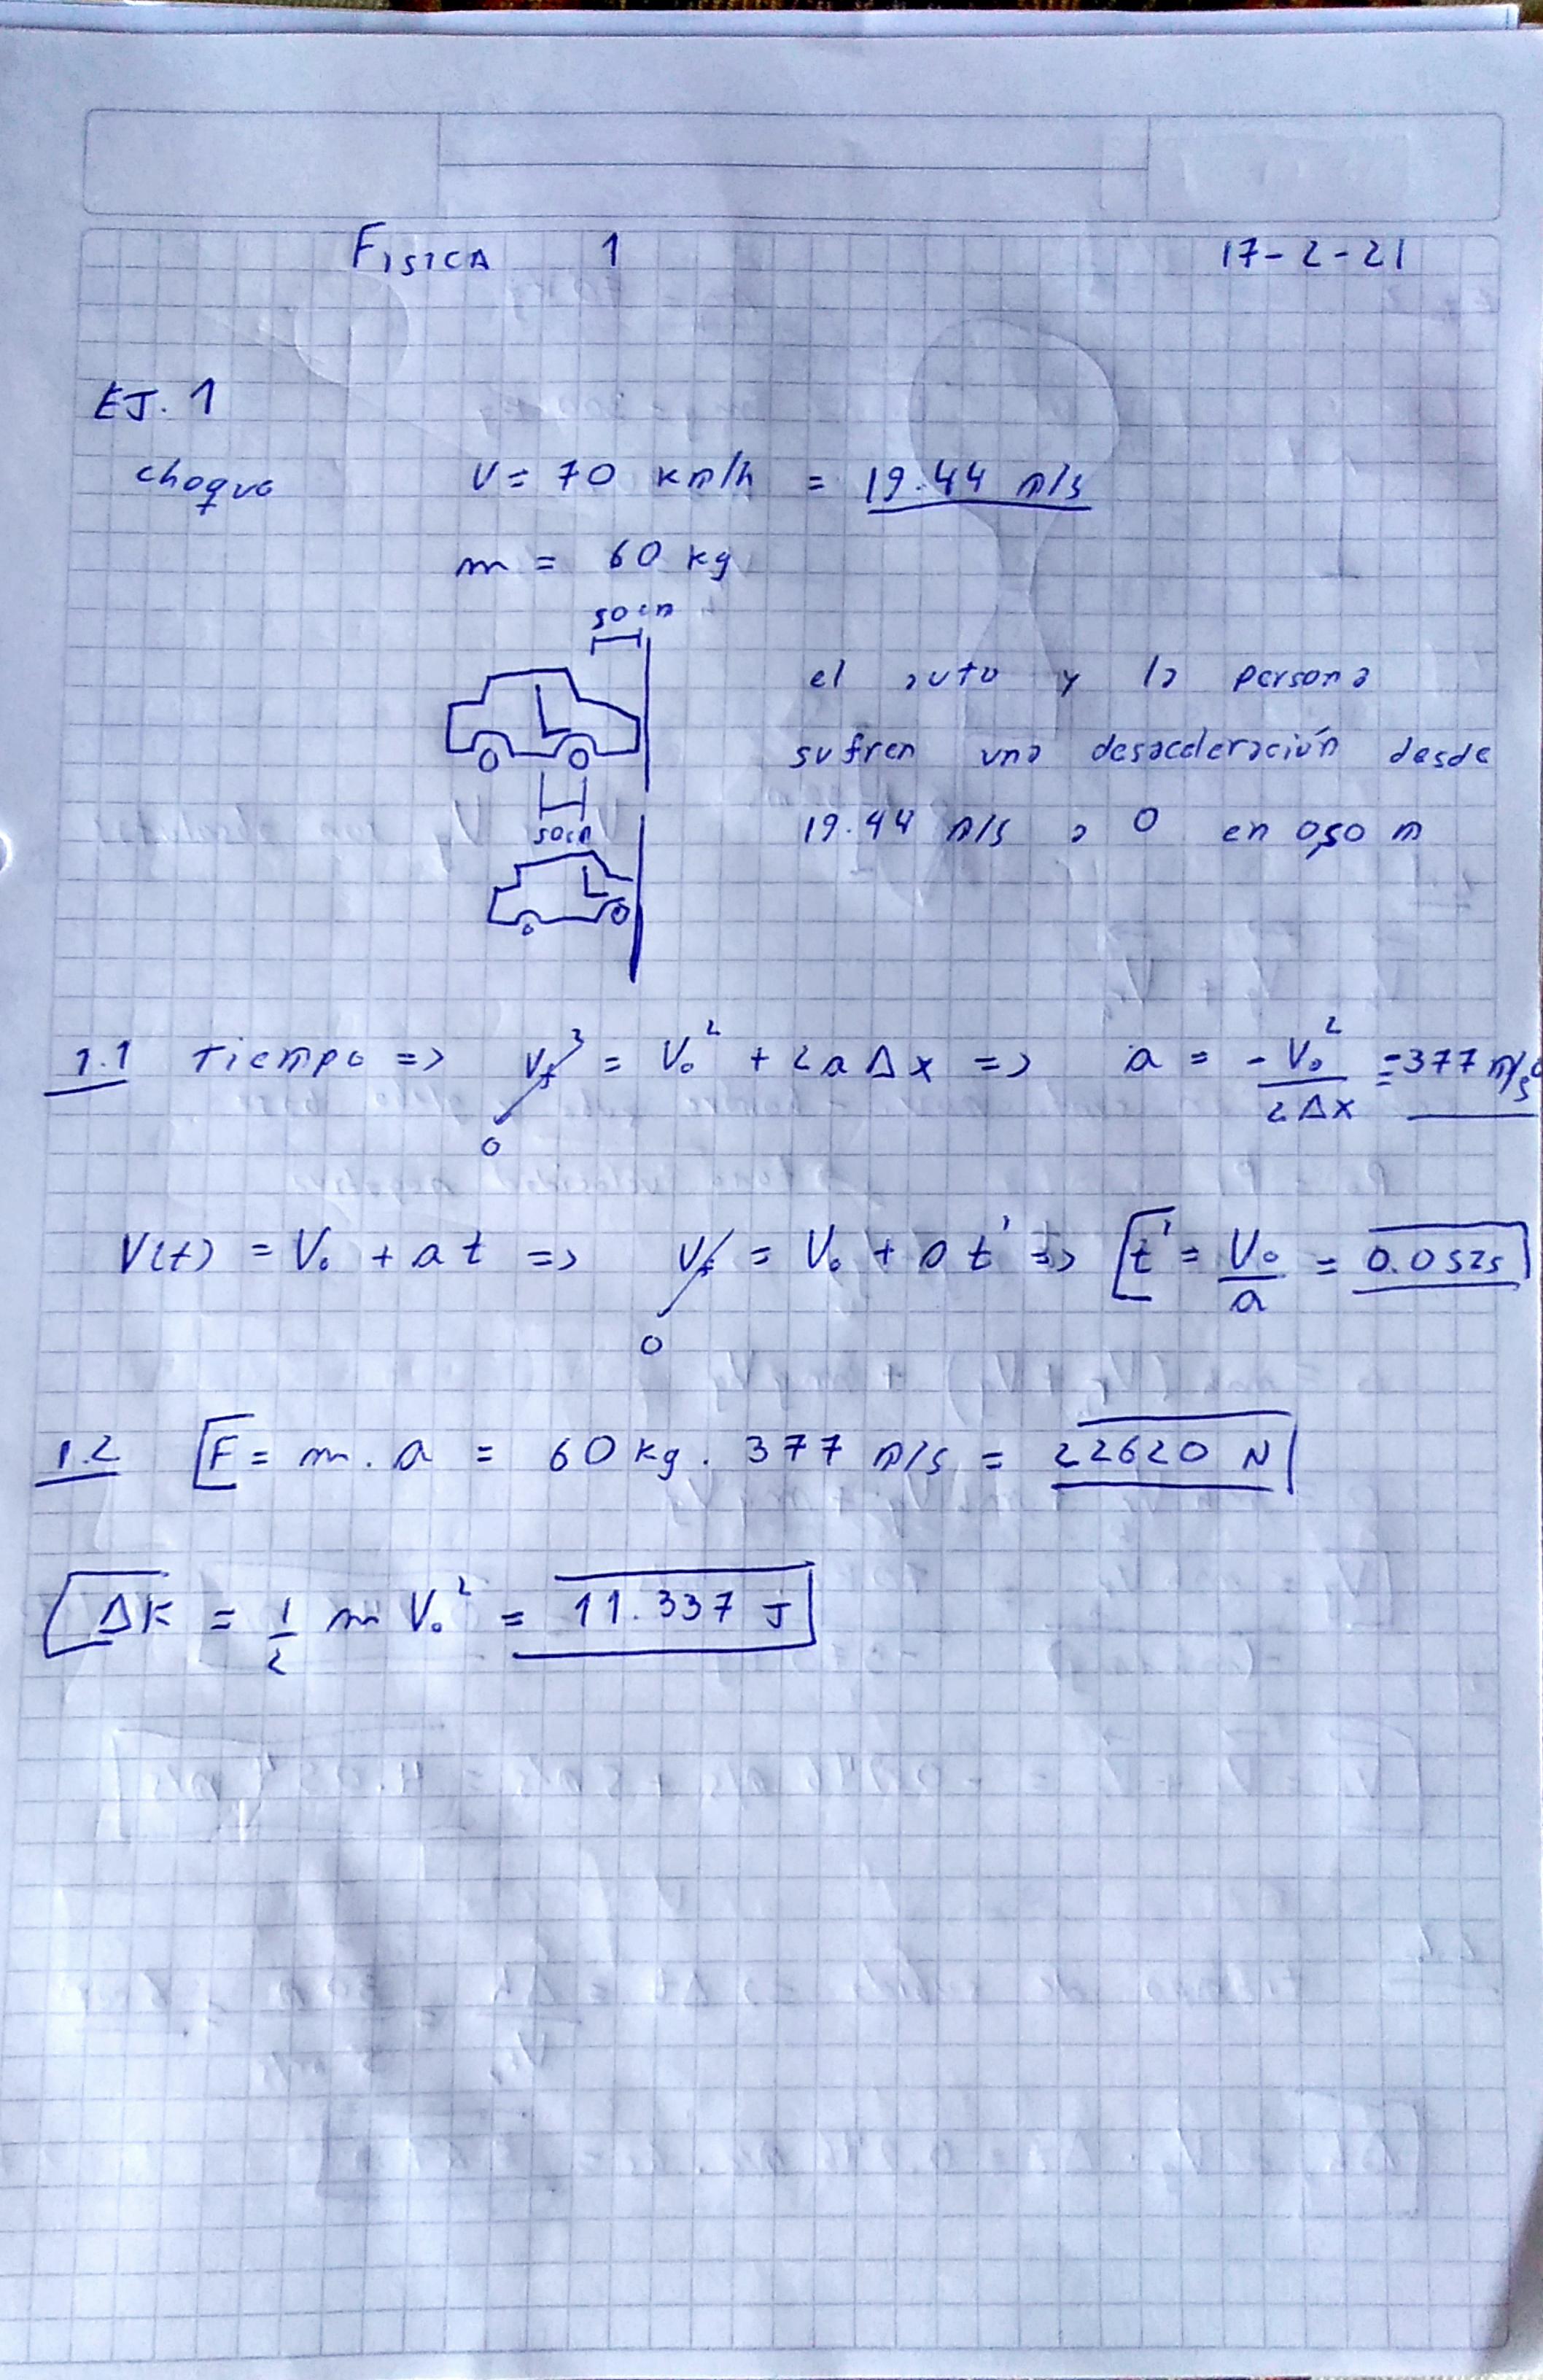 FISICA 1 17-2-21
EJ. 1
choque V = 70 km/h = 19.44 m/s
m = 60 kg
50cm
el auto y la persona
sufren una desaceleración desde
19.44 m/s a 0 en 0,50 m
50cm
1.1 Tiempo => Vf² = V₀² + 2a Δx => a = -V₀²/2Δx = -377 m/s²
0
V(t) = V₀ + a t => Vf = V₀ + a t' => t' = V₀/a = 0.052s
0
1.2 F = m . a = 60 kg . 377 m/s = 22620 N
ΔK = 1/2 m V₀² = 11.337 J